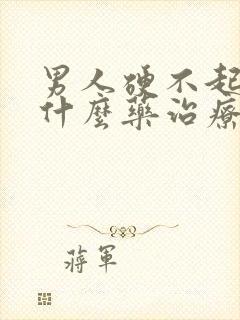 男人硬不起
什麼藥治療
蔣軍